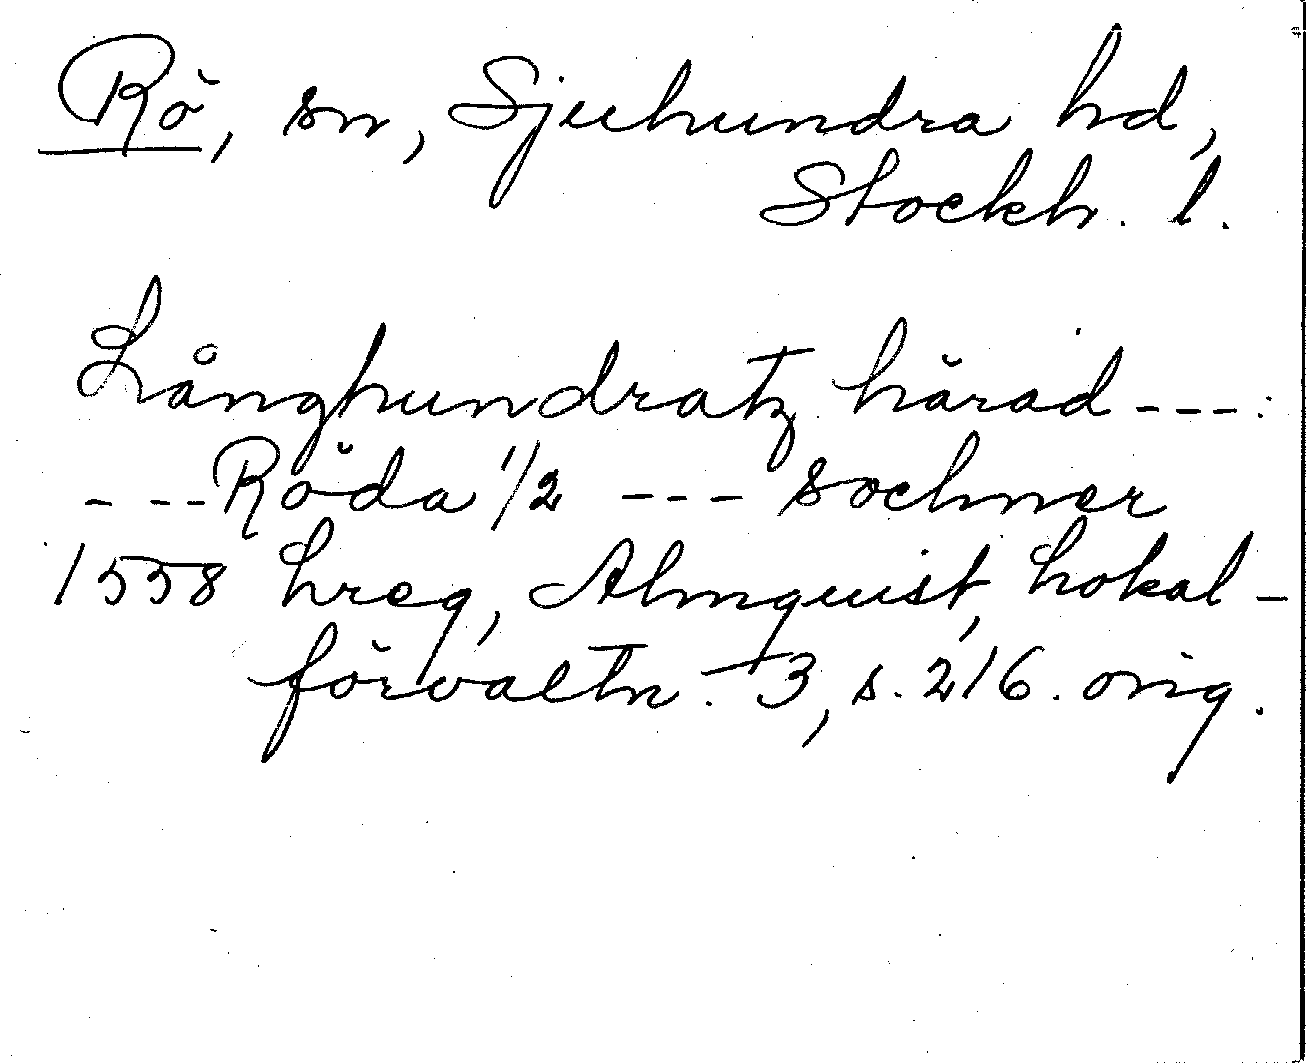 Rö, sn, Sjuhundra hd,
Stockh. l.
Långhundratz härad ---
--- Röda 1/2 --- sochner
1558 Lreg, Almquist, Lokal-
förvaltn. 3, s. 216. orig.